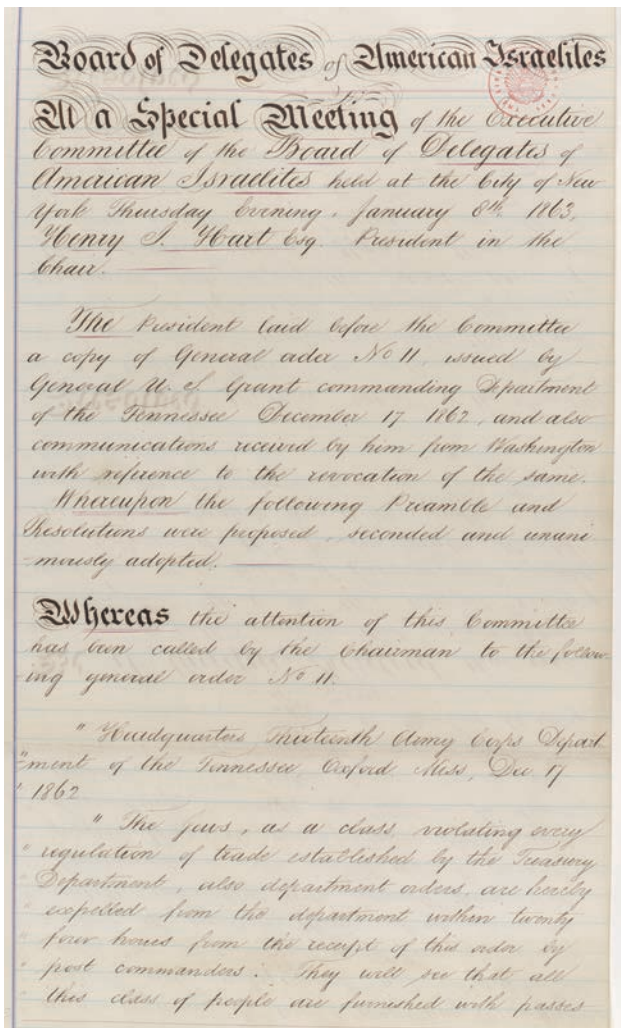 Board of Delegates of American Israelites
At a Special Meeting of the Executive
Committee of the Board of Delegates of
American Israelites held at the City of New
York Thursday Evening, January 8th 1863,
Henry I. Hart Esq. President in the
Chair.
The President laid before the Committee
a copy of General order No 11, issued by
General U. S. Grant commanding Department
of the Tennessee December 17 1862, and also
communications received by him from Washington
with reference to the revocation of the same.
Whereupon the following Preamble and
Resolutions were proposed, seconded and unani
-mously adopted.
Whereas the attention of this Committee
has been called by the Chairman to the follow-
ing general order No 11.
" Headquarters Thirteenth Army Corps Depart
"ment of the Tennessee, Oxford Miss, Dec 17
" 1862
" The Jews, as a class, violating every
" regulation of trade established by the Treasury
" Department, also department orders, are hereby
" expelled from the department within twenty
" four hours from the receipt of this order by
" post commanders. They will see that all
" this class of people are furnished with passes